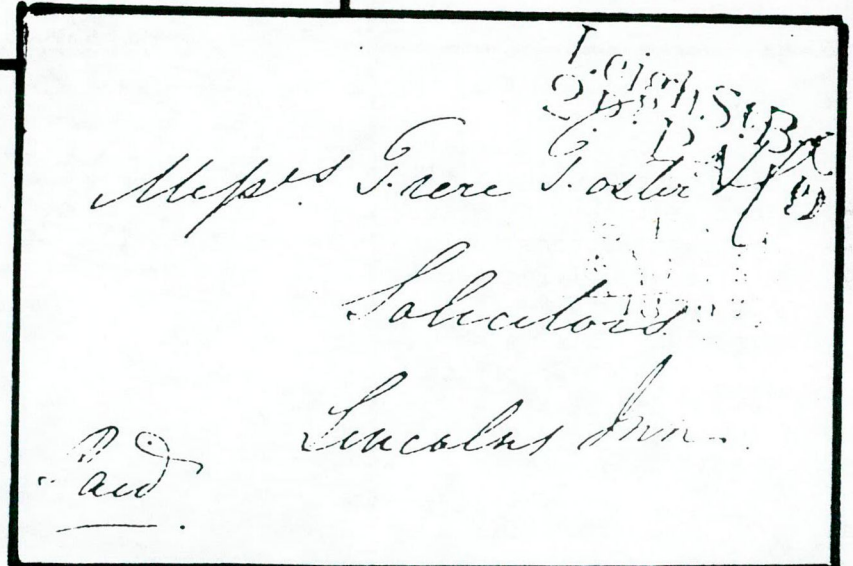 Leigh. St. B.
2 py. P. Paid
Messrs. Frere Foster & Co
Solicitors
Lincolns Inn.
Paid.